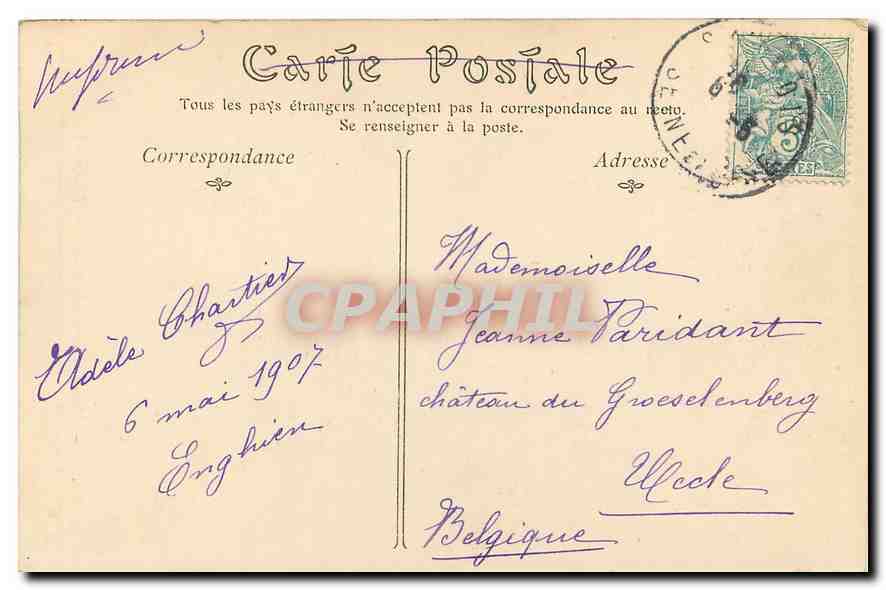 Imprimé
Carte Postale
Tous les pays étrangers n'acceptent pas la correspondance au recto.
Se renseigner à la poste.
Correspondance
Adresse
5
CPAPHIL
Adèle Chartier
6 mai 1907
Enghien
Mademoiselle
Jeanne Paridant
château du Groeselenberg
Uccle
Belgique